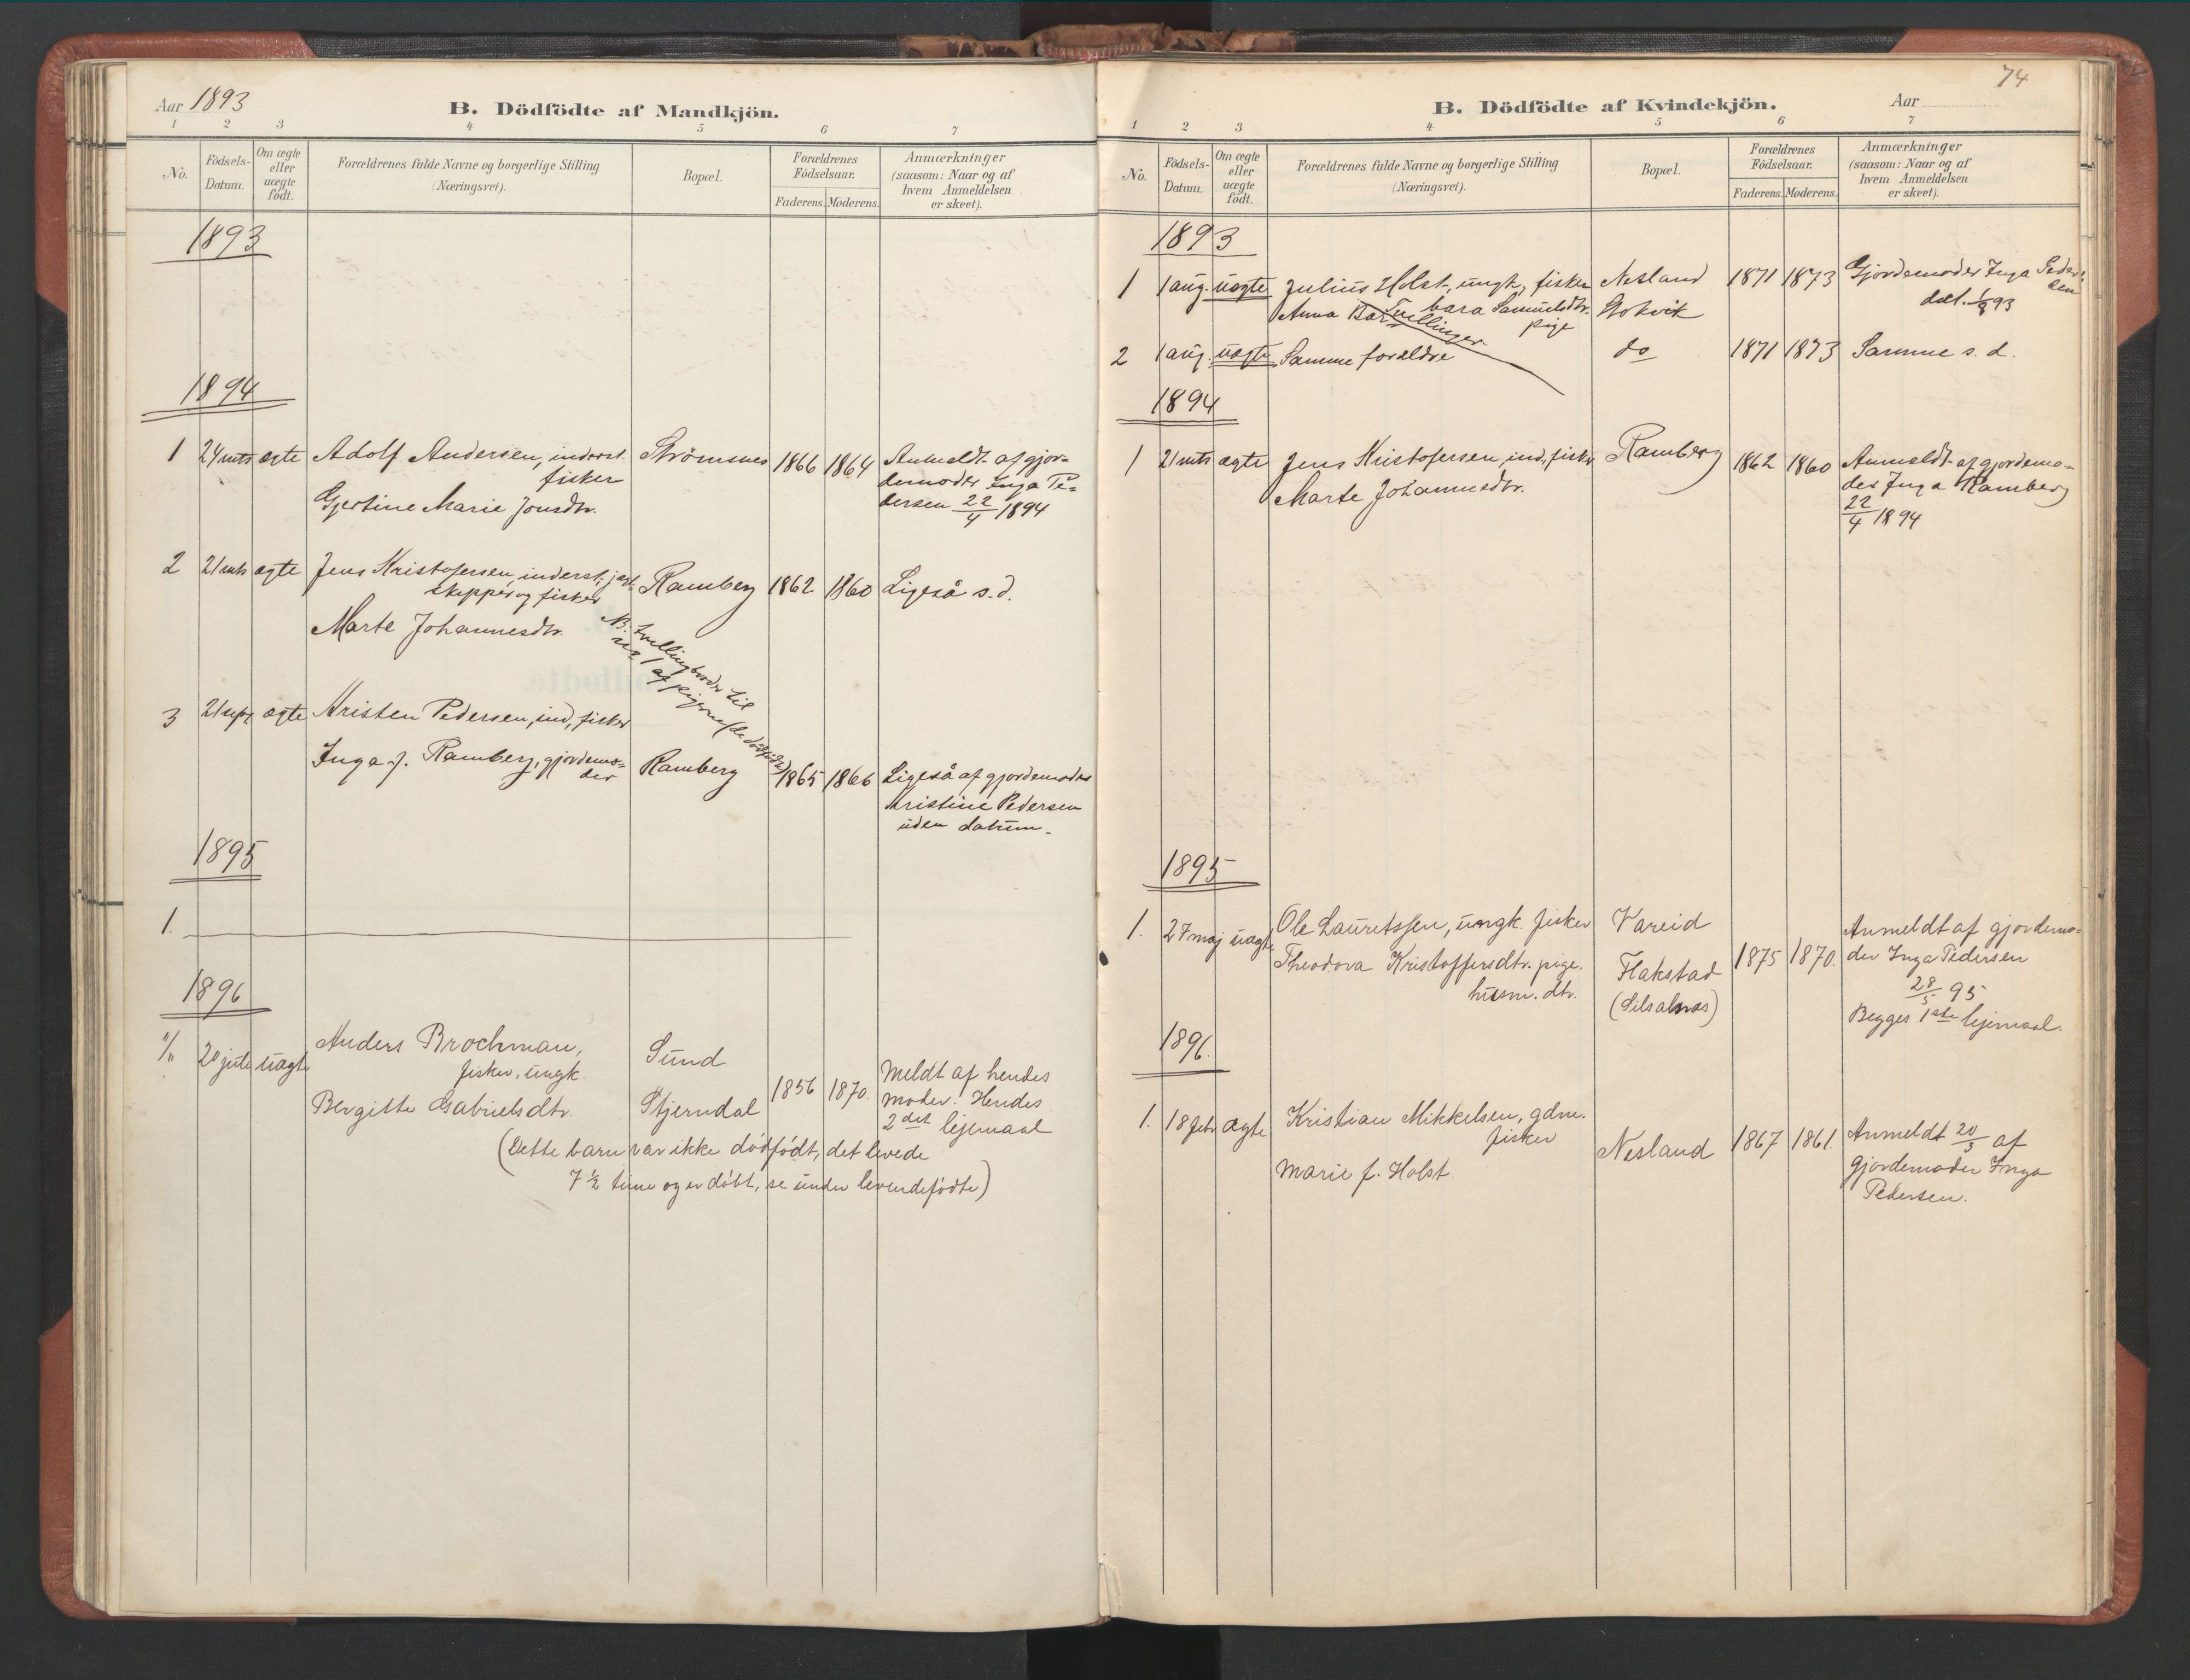 Aar 1893
B. Dödfödte af Mandkjön.
1 2 3 4 5 6 7
No.
Födsels-
Datum.
Om ægte
eller
uægte
födt.
Forældrenes fulde Navne og borgerlige Stilling
(Næringsvei).
Bopæl.
Forældrenes
Födselsaar.
Faderens. Moderens.
Anmærkninger
(saasom: Naar og af
hvem Anmeldelsen
er skeet).
1893
1894
1 24 mts ægte Adolf Andersen, inderst. Strømsnes 1866 1864 Anmeldt af gjor-
fisker demoder Inga Pe-
Gjertine Marie Jonsdtr. dersen 22/4 1894
2 21 mts ægte Jens Kristofersen, inderst, jægt- Ramberg 1862 1860 Ligeså s. d.
skipper og fisker
Marte Johannesdtr.
NB. tvillingbroder til
No 1 af pigerne (de dødfødte)
3 21 sept ægte Kristen Pedersen, ind, fisker
Inga f. Ramberg, gjordemo- Ramberg 1865 1866 Ligeså af gjordemoder
der Kristine Pedersen
uden datum.
1895
1.
1896
"/" 20 juli uægte Anders Brochman, Sund
fisker, ungk. 1856 1870. Meldt af hendes
Bergitte Gabrielsdtr. Stjerndal moder. Hendes
2det lejemaal
(Dette barn var ikke dödfödt, det levede
7 1/2 time og er döbt, se under levendefödte)
74
B. Dödfödte af Kvindekjön.
Aar
1 2 3 4 5 6 7
No.
Födsels-
Datum.
Om ægte
eller
uægte
födt.
Forældrenes fulde Navne og borgerlige Stilling
(Næringsvei).
Bopæl.
Forældrenes
Födselsaar.
Faderens. Moderens.
Anmærkninger
(saasom: Naar og af
hvem Anmeldelsen
er skeet).
1893
1 1 aug. uægte Julius Holst, ungk, fisker Nesland 1871 1873 Gjordemoder Inga Peder-
sen
Anna Barbara Samuelsdtr. Stokvik dat. 1/8 93
pige
Tvillinger
2 1 aug. uægte Samme forældre do 1871 1873 Samme s. d.
1894
1 21 mts ægte Jens Kristofersen, ind, fisker Ramberg 1862 1860 Anmeldt af gjordemo-
Marte Johannesdtr. der Inga Ramberg
22/4 1894
1895
1. 27 maj uægte Ole Lauritssen, ungk. fisker Vareid Anmeldt af gjordemo-
Theodora Kristoffersdtr. pige. Flakstad 1875 1870. der Inga Pedersen
husm. dtr. 28/5 95
Begges 1ste lejemaal.
1896.
1. 18 febr ægte Kristian Mikkelsen, gdm. Nesland 1867 1861. Anmeldt 20/3 af
fisker gjordemoder Inga
Marie f. Holst Pedersen.